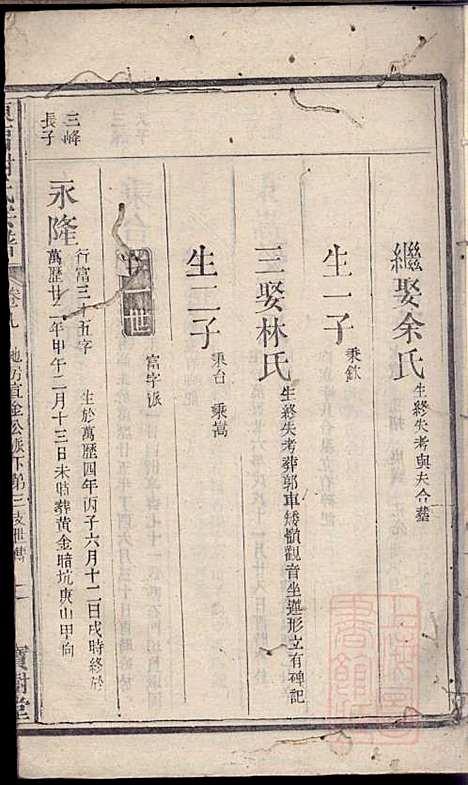 繼娶余氏 生終失考與夫合塟
生一子 秉欽
三娶林氏 生終失考葬郭車矮嶺觀音坐蓮形立有碑記
生二子 秉台 秉嵩
一世 富字派
三峰
長子
永隆 行富三十五字 生於萬歷四年丙子六月十二日戌時終於
萬歷廿二年甲午二月十三日未時葬黄金暗坑庚山甲向
卷九
寶樹堂